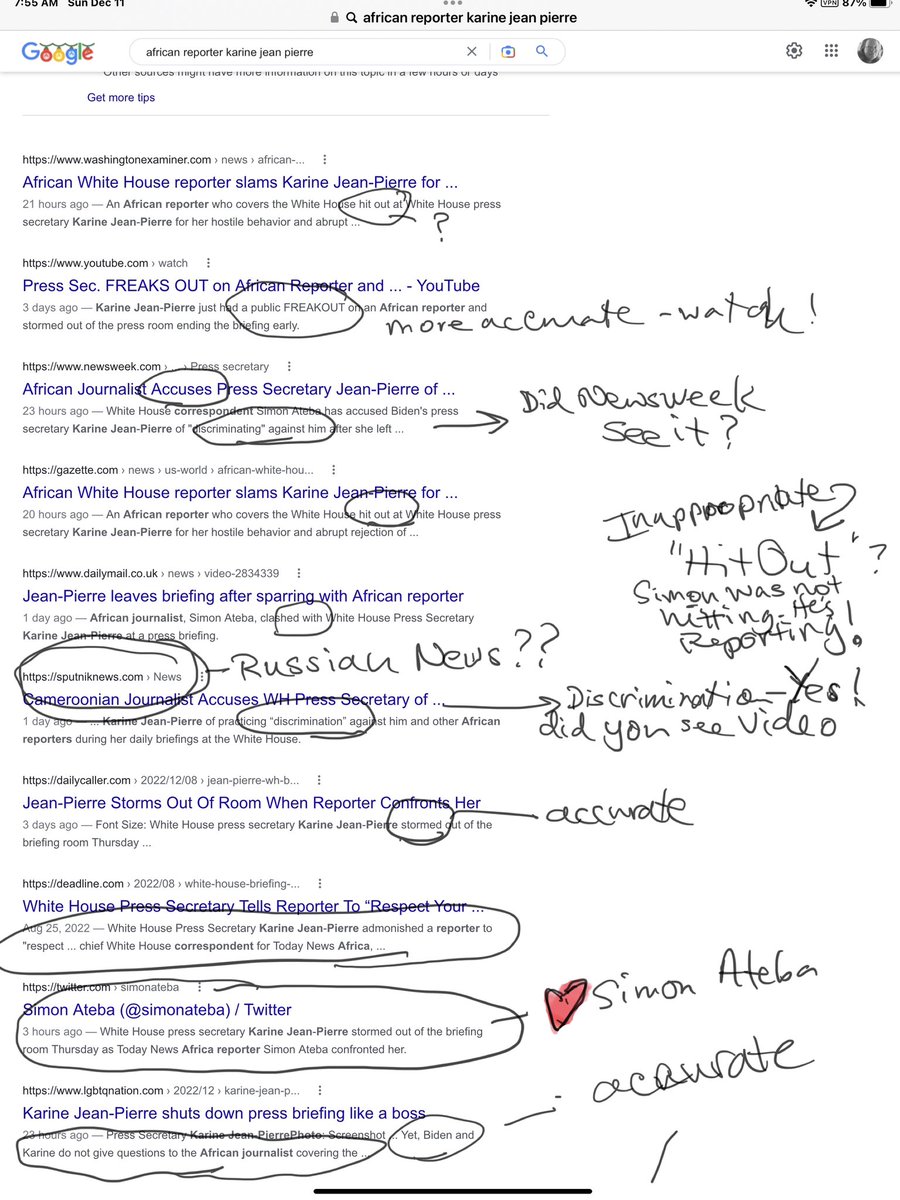 7:55 AM Sun Dec 11
VPN 87%
african reporter karine jean pierre
Google
african reporter karine jean pierre
Other sources might have more information on this topic in a few hours or days
Get more tips
https://www.washingtonexaminer.com › news › african-...
African White House reporter slams Karine Jean-Pierre for ...
21 hours ago — An African reporter who covers the White House hit out at White House press
secretary Karine Jean-Pierre for her hostile behavior and abrupt ...
?
https://www.youtube.com › watch
Press Sec. FREAKS OUT on African Reporter and ... - YouTube
3 days ago — Karine Jean-Pierre just had a public FREAKOUT on an African reporter and
stormed out of the press room ending the briefing early.
more accurate - watch!
https://www.newsweek.com › ... › Press secretary
African Journalist Accuses Press Secretary Jean-Pierre of ...
23 hours ago — White House correspondent Simon Ateba has accused Biden's press
secretary Karine Jean-Pierre of "discriminating" against him after she left ...
Did Newsweek
See it?
https://gazette.com › news › us-world › african-white-hou...
African White House reporter slams Karine Jean-Pierre for ...
20 hours ago — An African reporter who covers the White House hit out at White House press
secretary Karine Jean-Pierre for her hostile behavior and abrupt rejection of ...
Inappropriate?
"Hit Out" ?
Simon was not
hitting - He's
Reporting!
https://www.dailymail.co.uk › news › video-2834339
Jean-Pierre leaves briefing after sparring with African reporter
1 day ago — African journalist, Simon Ateba, clashed with White House Press Secretary
Karine Jean-Pierre at a press briefing.
https://sputniknews.com › News
- Russian News??
Cameroonian Journalist Accuses WH Press Secretary of ...
1 day ago — ... Karine Jean-Pierre of practicing "discrimination" against him and other African
reporters during her daily briefings at the White House.
Discrimination - Yes!
did you see video
https://dailycaller.com › 2022/12/08 › jean-pierre-wh-b...
Jean-Pierre Storms Out Of Room When Reporter Confronts Her
3 days ago — Font Size: White House press secretary Karine Jean-Pierre stormed out of the
briefing room Thursday ...
accurate
https://deadline.com › 2022/08 › white-house-briefing-...
White House Press Secretary Tells Reporter To "Respect Your ...
Aug 25, 2022 — White House Press Secretary Karine Jean-Pierre admonished a reporter to
"respect ... chief White House correspondent for Today News Africa, ...
https://twitter.com › simonateba
Simon Ateba (@simonateba) / Twitter
3 hours ago — White House press secretary Karine Jean-Pierre stormed out of the briefing
room Thursday as Today News Africa reporter Simon Ateba confronted her.
Simon Ateba
https://www.lgbtqnation.com › 2022/12 › karine-jean-p...
Karine Jean-Pierre shuts down press briefing like a boss
23 hours ago — Press Secretary Karine Jean-PierrePhoto: Screenshot .. Yet, Biden and
Karine do not give questions to the African journalist covering the ...
accurate